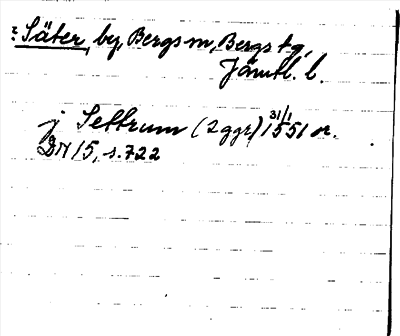 : Säter, by, Bergs sn, Bergs tg,
Jämtl. l.
j Settrum (2 ggr) 31/1 1551 or.
DN 15, s. 722